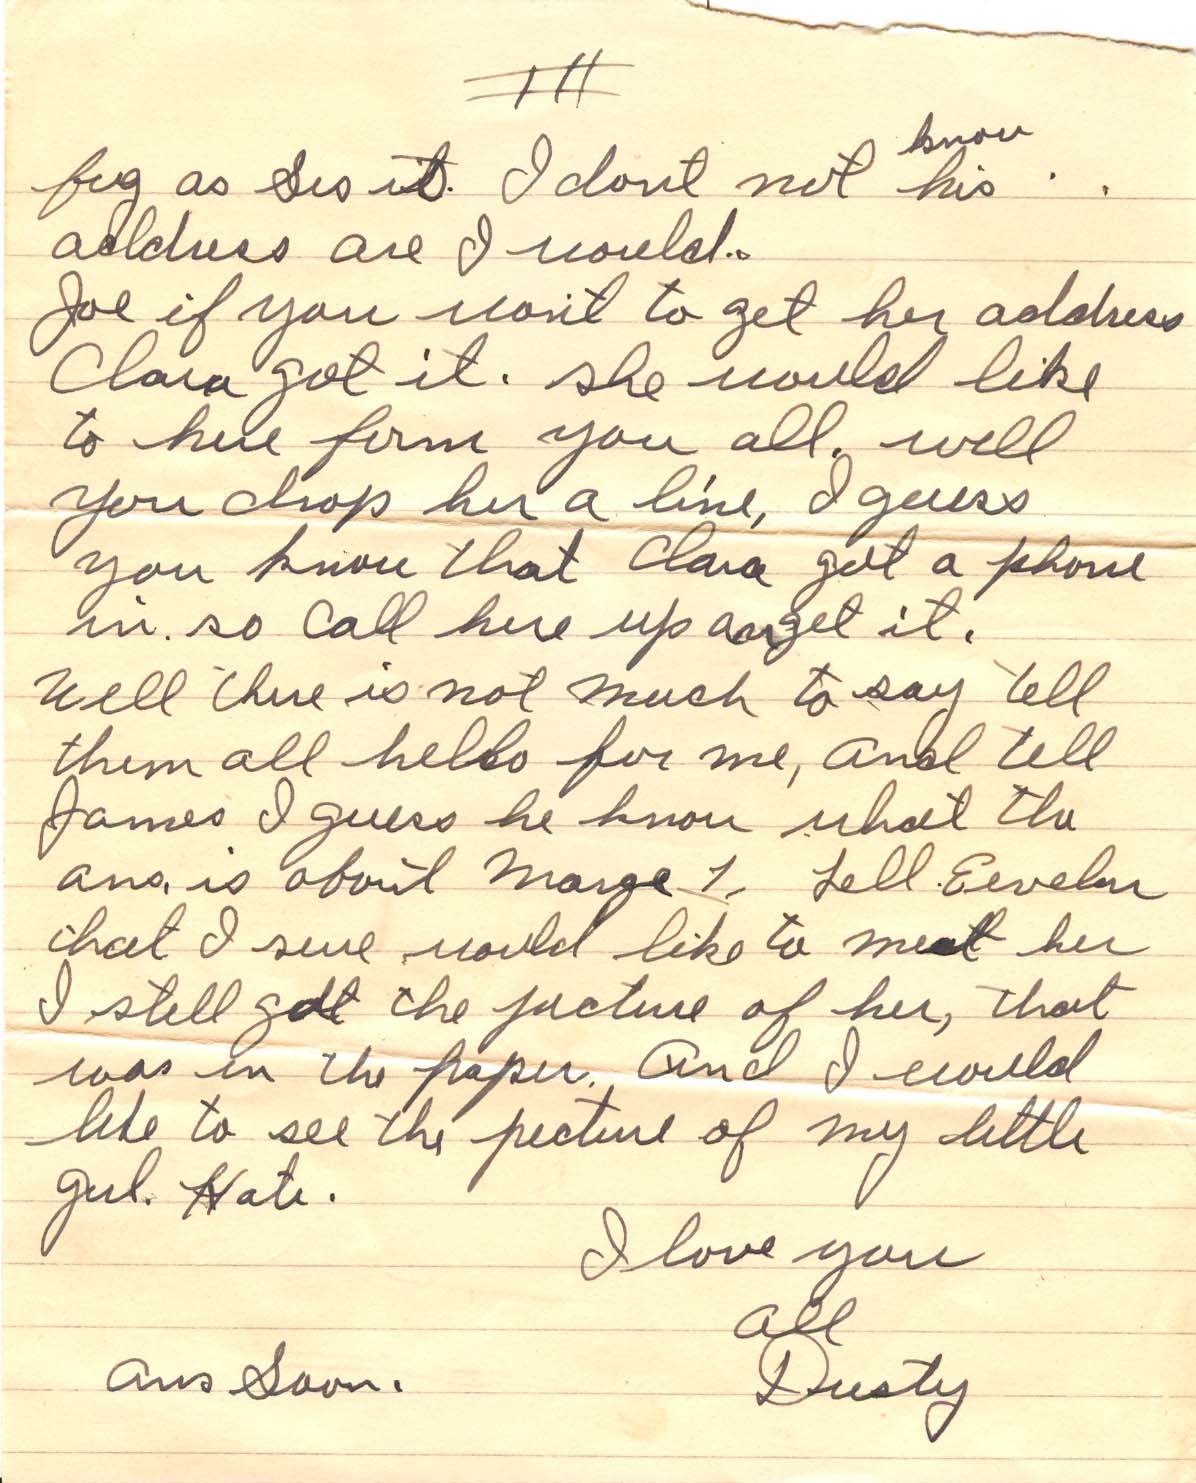 III
as Sis it. I dont not know his
address are I would.
Joe if you won't to get her address
Clara got it. she would like
to here form you all. will
you drop her a line, I guess
you know that Clara got a phone
in. so call here up an get it.
Well there is not much to say tell
them all hello for me, and tell
James I guess he know what the
ans. is about Marge. Tell
that I sure would like to meat her
I still got the picture of her, that
was in the paper. And I would
like to see the picture of my little
girl.
I love you
all
Dusty
Ans Soon.